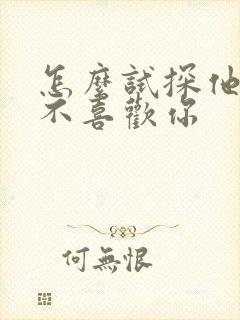 怎麼試探他
不喜歡你
何無恨